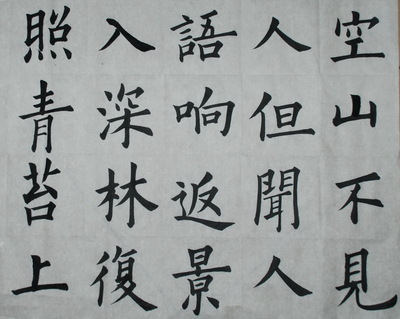 空山不見
人但聞人
語响返景
入深林復
照青苔上